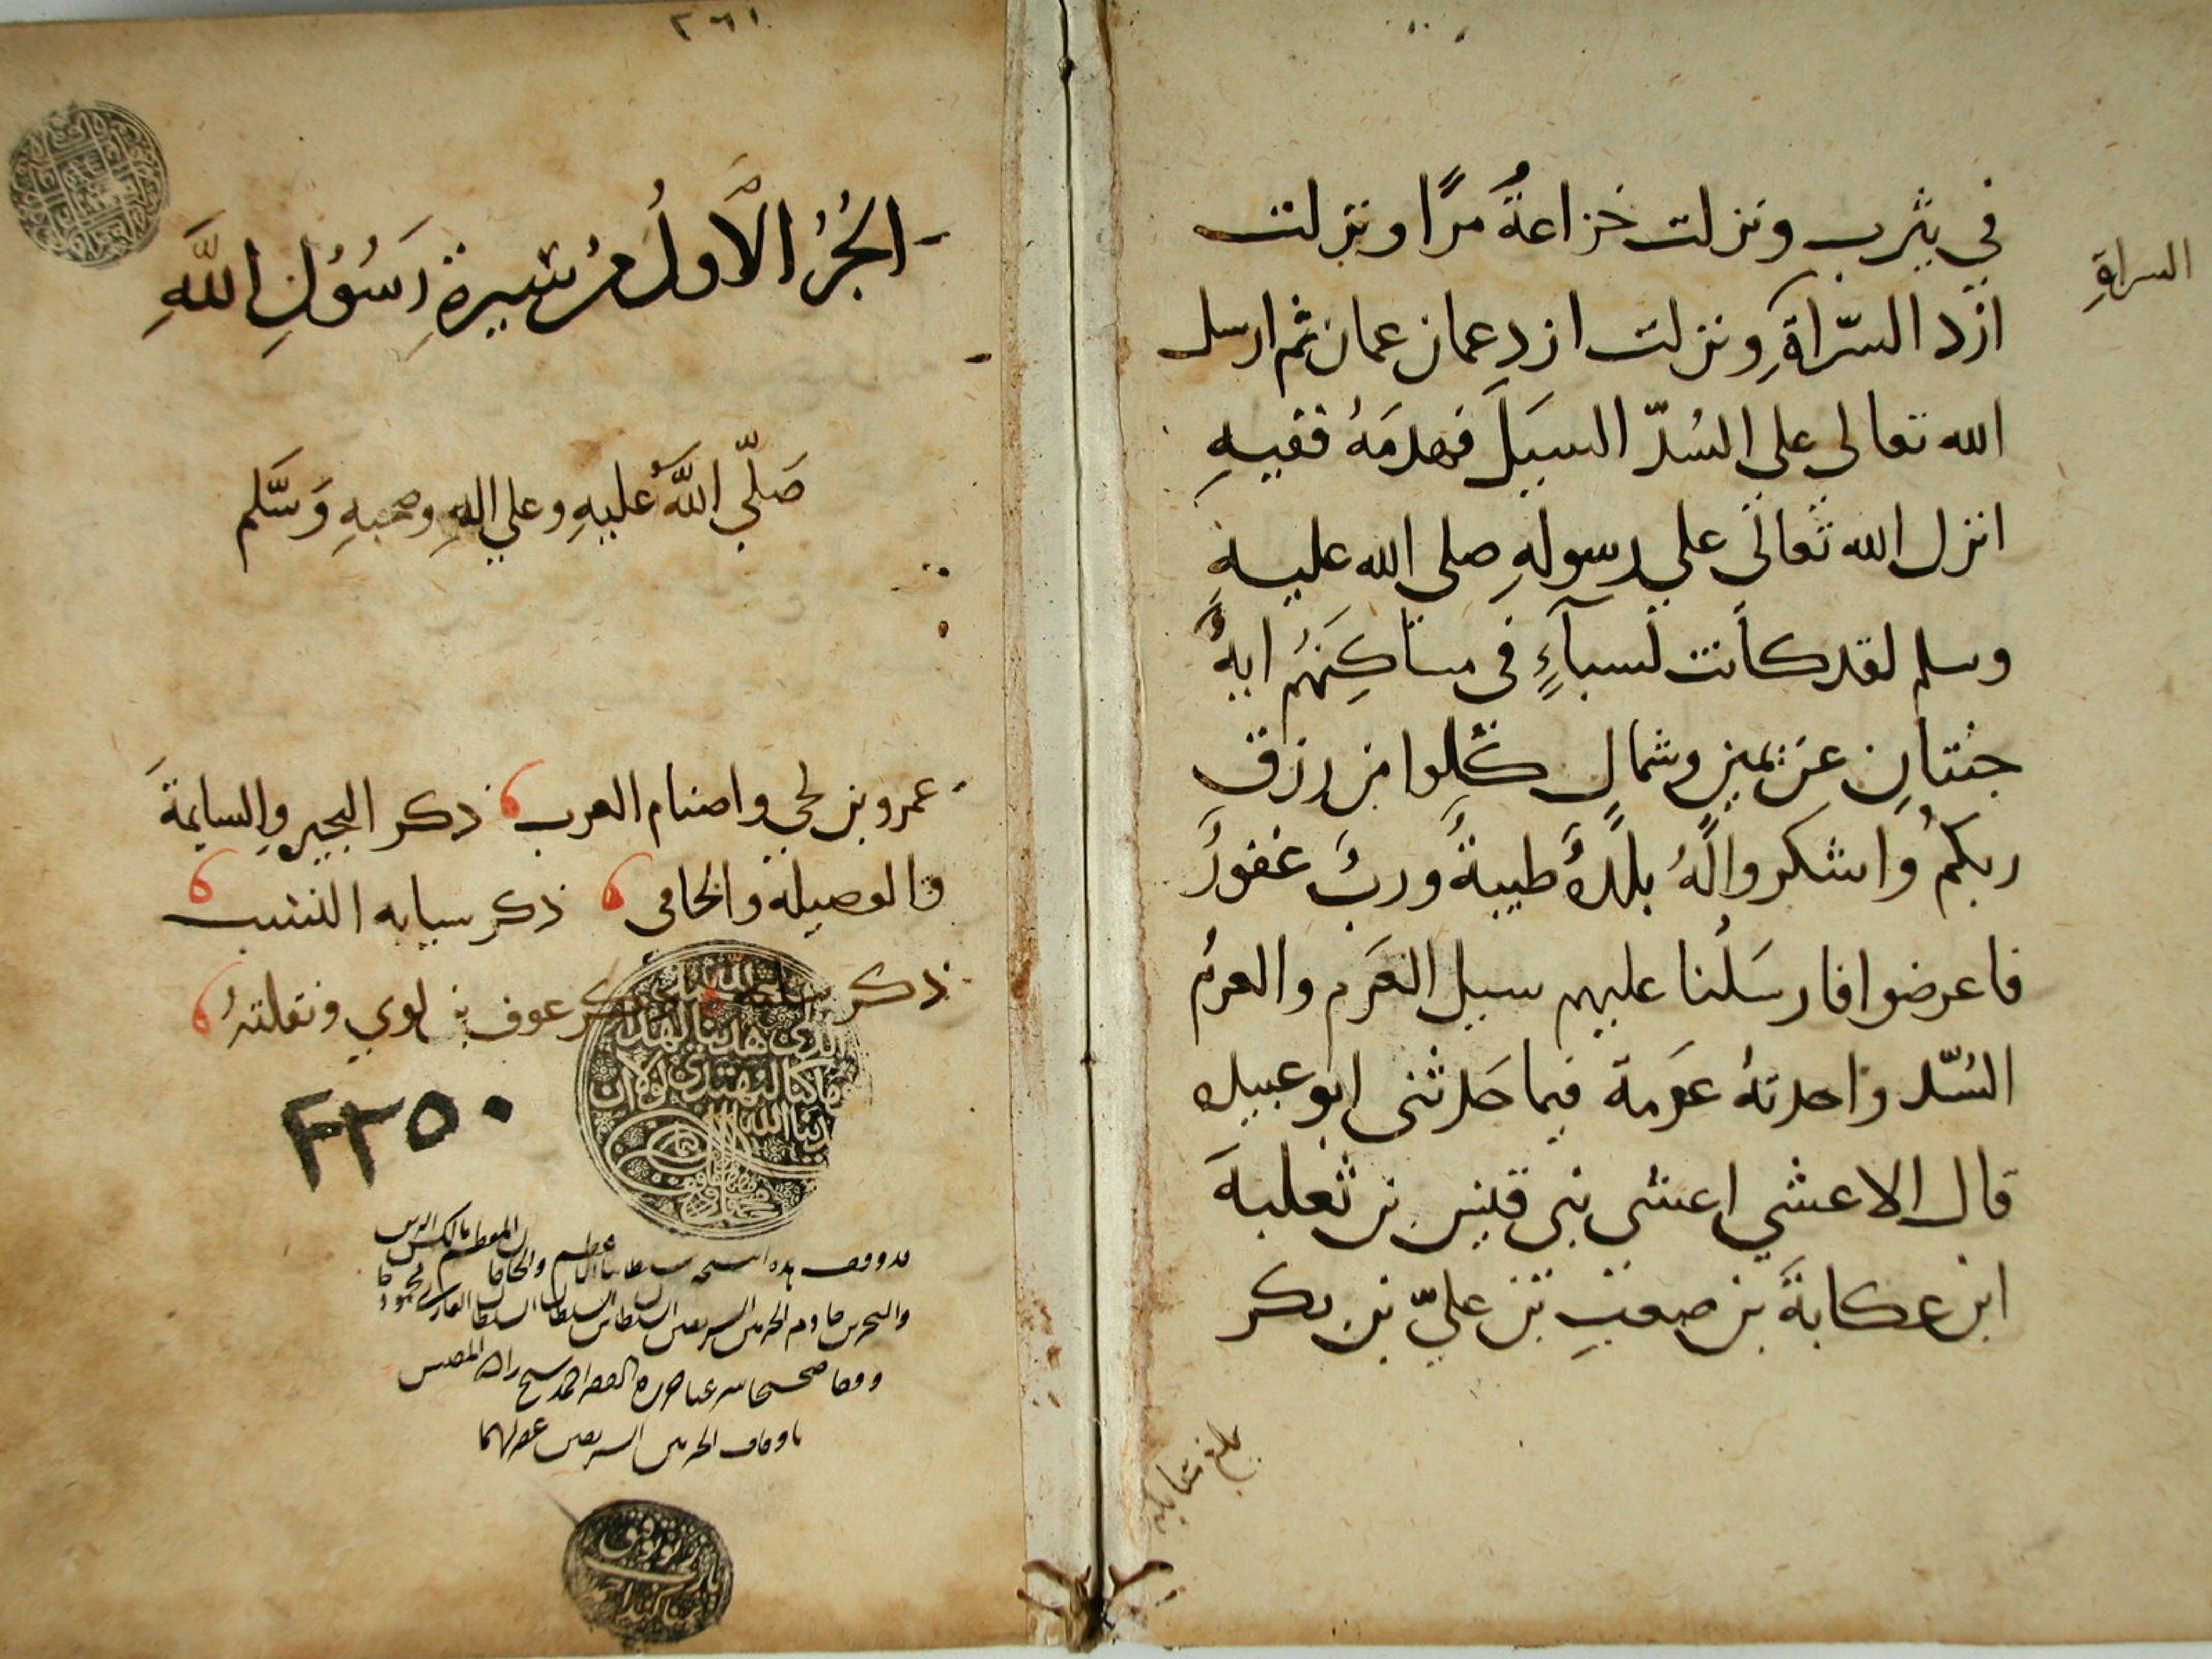 في يثرب ونزلت خزاعةُ مرًا ونزلت
ازد السّراةِ ونزلت ازد عمان عمان ثم ارسل
الله تعالى على السُدّ السيلَ فهدمَهُ ففيهِ
انزل الله تعالى علي رسولهِ صلى الله عليهِ
وسلم لقد كانت لسباءٍ في مساكِنِهُم ايةُ
جنتانِ عن يمين وشمالٍ كلوا من رزق
ربكمُ واشكروا لَهُ بلدةُ طيبةُ وربُ غفورُ
فاعرضوا فارسَلُنا عليهم سيل العَرم والعرمُ
السُدّ واحدتهُ عَرمة فيما حَدثني ابو عبيده
قال الاعشي اعشي بني قيس بن ثعلبةَ
ابن عكابةَ بن صعبِ بن عليّ بن بكر
السراةِ
بلغ
٢٦١
الجُزُ الاَّولُ من سِيرةِ رَسُوُلِ اللَّهِ
صَلّي اللَّهُ عليهِ وعلي الهِ وصحبهِ وَسَّلم
عمرو بن لحي واصنام العرب ذكر البحير والسايبةَ
والوصيله والحامى ذكر سيايه النسب
ذكر سامة ذكر عوف بن لوي ونقلتهُ
الحمد لله الذي هدينا لهذا
وما كنا لنهتدي لولا ان
هدينا الله
٢٢٥٠
قد وقف هذه النسخه سلطاننا الاعظم والخاقان المعظم مالك البرين
والبحرين خادم الحرمين الشريفين السلطان بن السلطان السلطان الغازي محمود خان
وقفا صحيحا شرعيا حرره الفقير احمد شيخ زاده المفتش
باوقاف الحرمين الشريفين غفر لهما